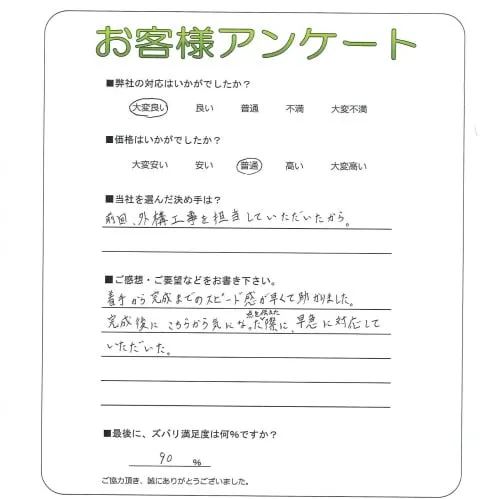 お客様アンケート
■弊社の対応はいかがでしたか？
大変良い 良い 普通 不満 大変不満
■価格はいかがでしたか？
大変安い 安い 普通 高い 大変高い
■当社を選んだ決め手は？
前回、外構工事を担当していただいたから。
■ご感想・ご要望などをお書き下さい。
着手から完成までのスピード感が早くて助かりました。
完成後にこちらから気になった点を伝えた際に、早急に対応して
いただいた。
■最後に、ズバリ満足度は何%ですか？
90 %
ご協力頂き、誠にありがとうございました。